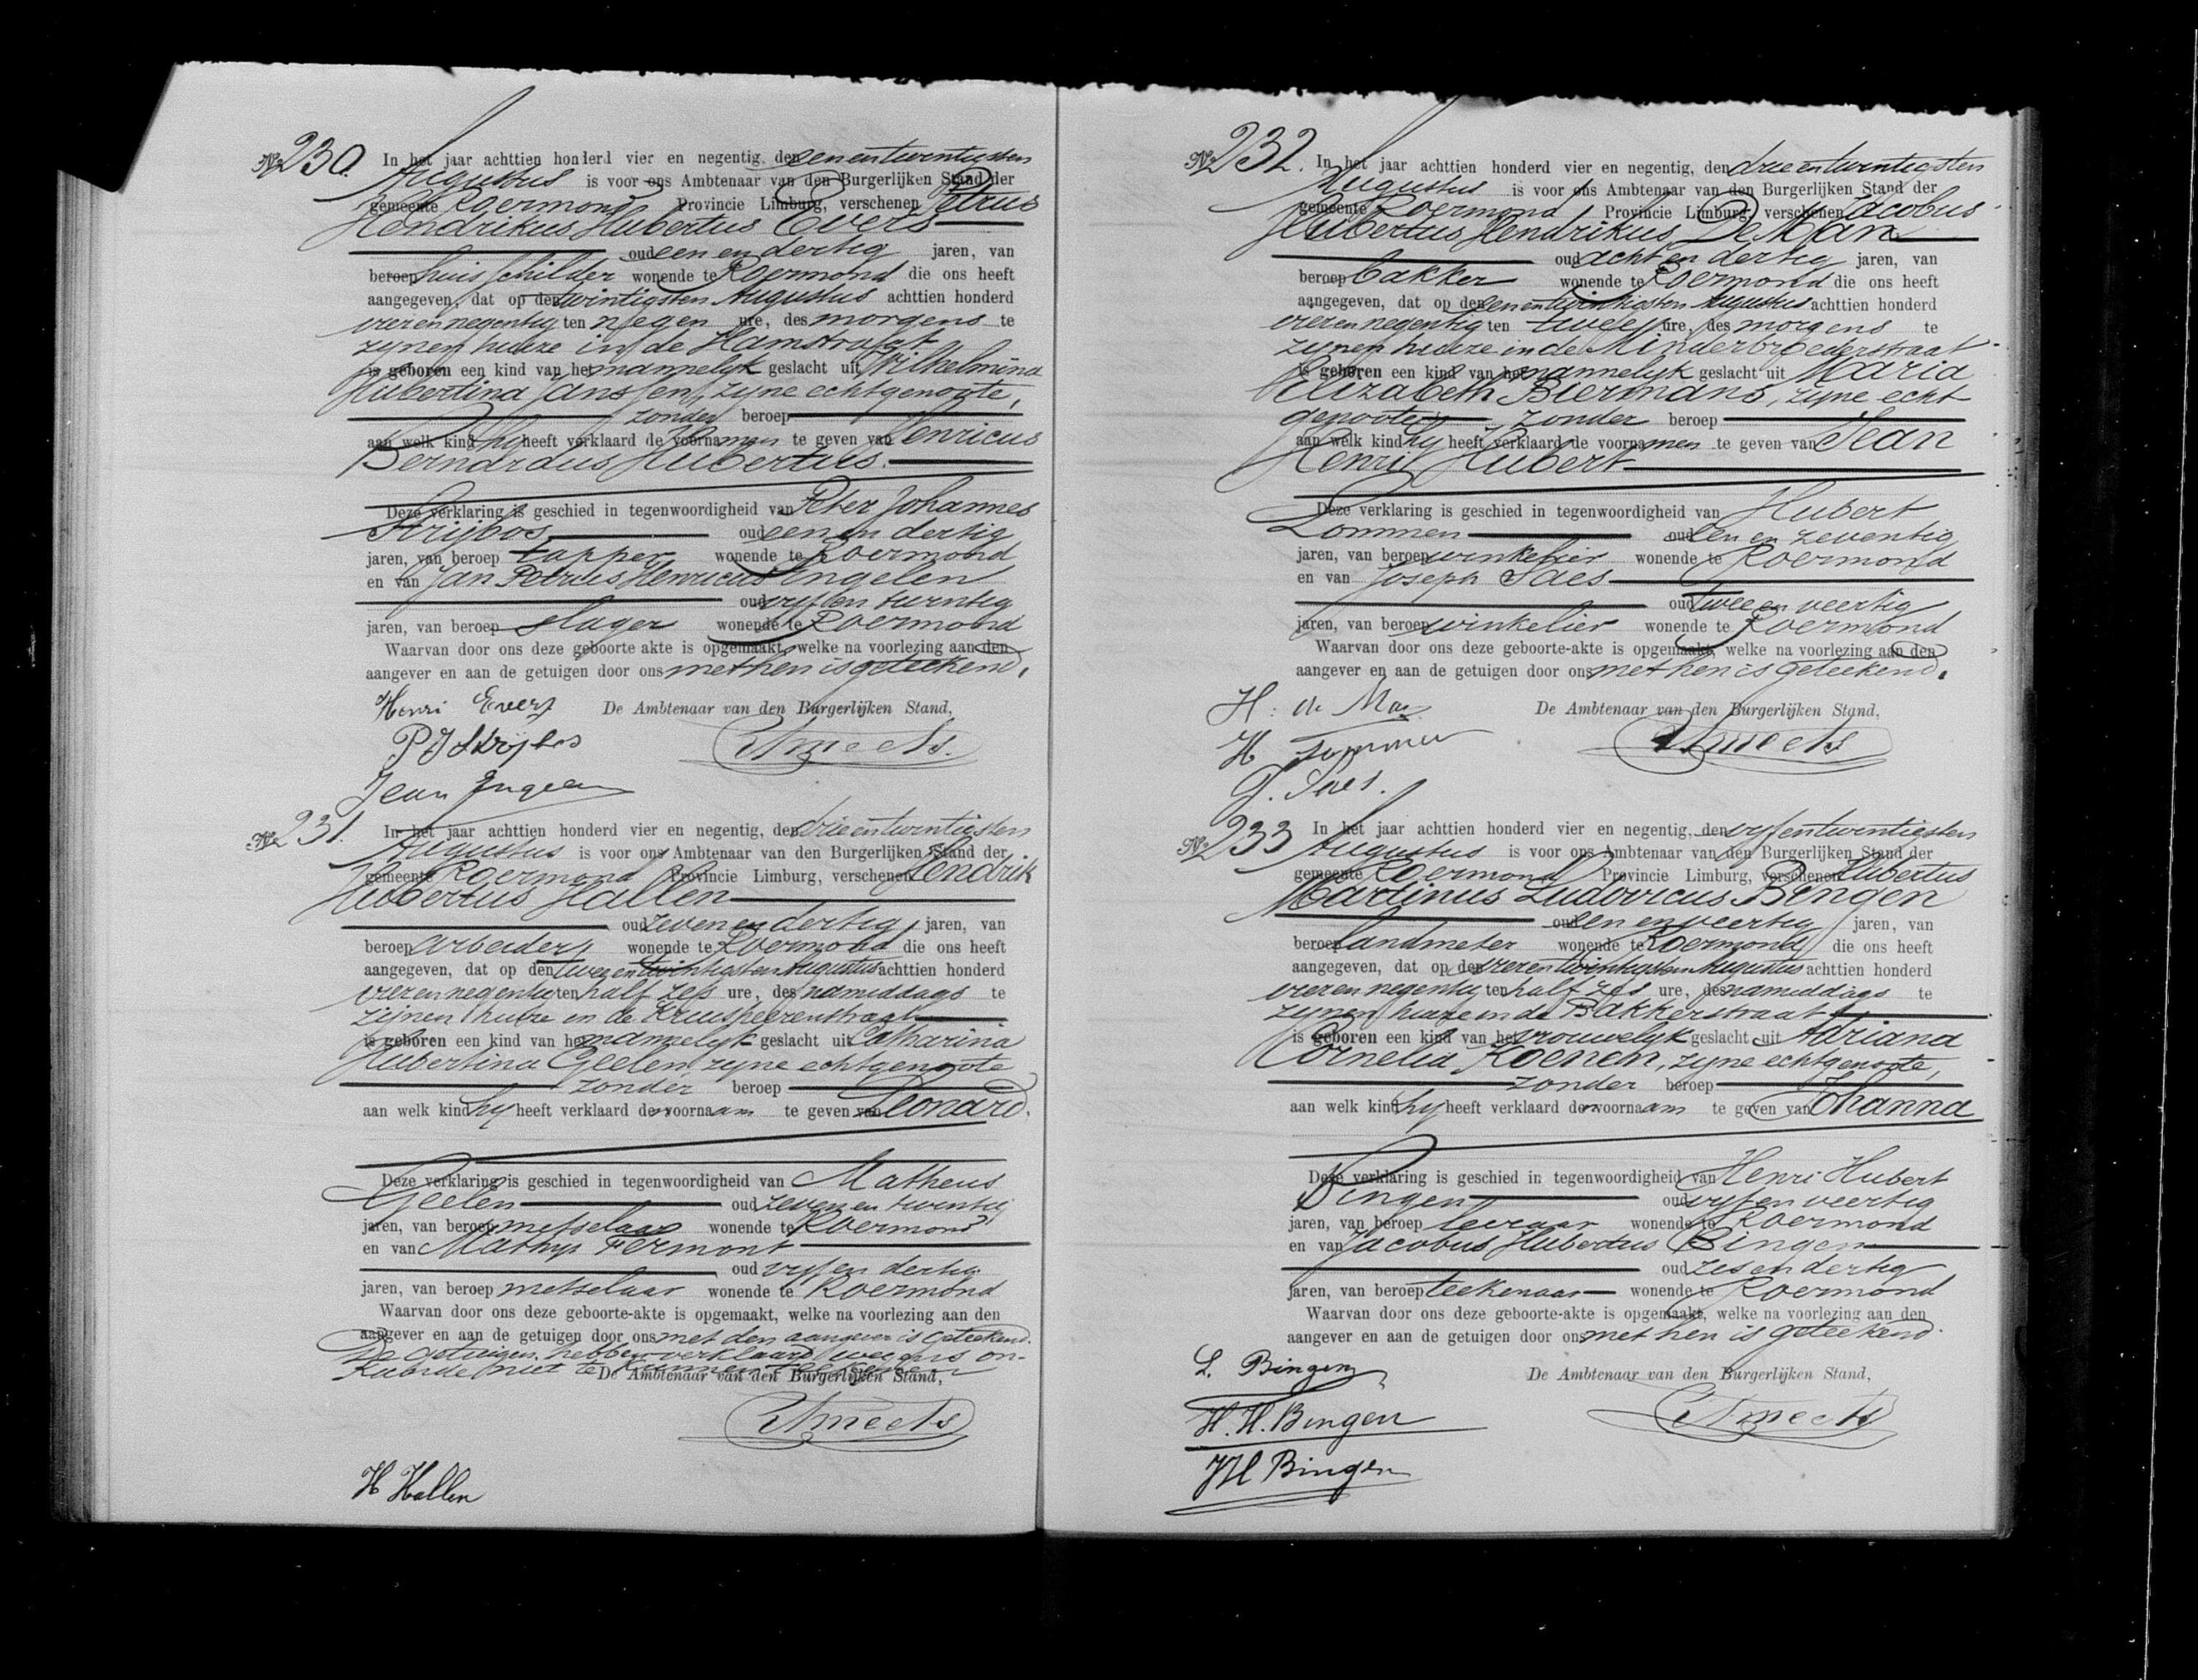 No 230. In het jaar achttien honderd vier en negentig, den eenentwintigsten
Augustus is voor ons Ambtenaar van den Burgerlijken Stand der
gemeente Roermond Provincie Limburg, verschenen Petrus
Hendrikus Hubertus Evers
oud een en dertig jaren, van
beroep huisschilder wonende te Roermond die ons heeft
aangegeven, dat op den twintigsten Augustus achttien honderd
vier en negentig ten negen ure, des morgens te
zynen huize in de Hamstraat
is geboren een kind van het mannelyk geslacht uit Wilhelmina
Hubertina Janssen, zyne echtgenoote,
zonder beroep
aan welk kind hy heeft verklaard de voornamen te geven van Henricus
Bernardus Hubertus.
Deze verklaring is geschied in tegenwoordigheid van Peter Johannes
Strijbos oud een en dertig
jaren, van beroep tapper wonende te Roermond
en van Jan Petrus Henricus Engelen
oud vyf en twintig
jaren, van beroep slager wonende te Roermond
Waarvan door ons deze geboorte akte is opgemaakt, welke na voorlezing aan den
aangever en aan de getuigen door ons met hen is geteekend.
Henri Evers De Ambtenaar van den Burgerlijken Stand,
P J Strijbos
Jean Engelen
No 231. In het jaar achttien honderd vier en negentig, den drieentwintigsten
Augustus is voor ons Ambtenaar van den Burgerlijken Stand der
gemeente Roermond Provincie Limburg, verschenen Hendrik
Hubertus Hallen
oud zeven en dertig jaren, van
beroep arbeider wonende te Roermond die ons heeft
aangegeven, dat op den tweeentwintigsten Augustus achttien honderd
vier en negentig ten half zes ure, des namiddags te
zijnen huize in de Kruisheerenstraat
is geboren een kind van het mannelyk geslacht uit Catharina
Hubertina Geelen, zyne echtgenoote
zonder beroep
aan welk kind hy heeft verklaard den voornaam te geven van Leonard.
Deze verklaring is geschied in tegenwoordigheid van Matheus
Geelen oud zeven en twintig
jaren, van beroep metselaar wonende te Roermond
en van Mathys Fermont
oud vyf en dertig
jaren, van beroep metselaar wonende te Roermond
Waarvan door ons deze geboorte-akte is opgemaakt, welke na voorlezing aan den
aangever en aan de getuigen door ons met den aangever is geteekend.
De getuigen hebben verklaard wegens on-
kunde niet te kunnen teekenen
De Ambtenaar van den Burgerlijken Stand,
H Hallen
No 232. In het jaar achttien honderd vier en negentig, den drieentwintigsten
Augustus is voor ons Ambtenaar van den Burgerlijken Stand der
gemeente Roermond Provincie Limburg, verschenen Jacobus
Hubertus Hendrikus De Man
oud acht en dertig jaren, van
beroep bakker wonende te Roermond die ons heeft
aangegeven, dat op den eenentwintigsten Augustus achttien honderd
vier en negentig ten twee ure, des morgens te
zynen huize in de Minderbroederstraat
is geboren een kind van het mannelyk geslacht uit Maria
Elizabeth Biermans, zyne echt
genoote, zonder beroep
aan welk kind hy heeft verklaard de voornamen te geven van Jean
Henri Hubert
Deze verklaring is geschied in tegenwoordigheid van Hubert
Lommen oud een en zeventig
jaren, van beroep winkelier wonende te Roermond
en van Joseph Saes
oud twee en veertig
jaren, van beroep winkelier wonende te Roermond
Waarvan door ons deze geboorte-akte is opgemaakt, welke na voorlezing aan den
aangever en aan de getuigen door ons met hen is geteekend.
H. de Man De Ambtenaar van den Burgerlijken Stand,
H Lommen
J. Saes.
No 233 In het jaar achttien honderd vier en negentig, den vyfentwintigsten
Augustus is voor ons Ambtenaar van den Burgerlijken Stand der
gemeente Roermond Provincie Limburg, verschenen Hubertus
Martinus Ludovicus Bingen
oud een en veertig jaren, van
beroep landmeter wonende te Roermond die ons heeft
aangegeven, dat op den vierentwintigsten Augustus achttien honderd
vier en negentig ten half zes ure, des namiddags te
zynen huize in de Bakkerstraat
is geboren een kind van het vrouwelyk geslacht uit Adriana
Cornelia Koenen, zyne echtgenoote,
zonder beroep
aan welk kind hy heeft verklaard den voornaam te geven van Johanna
Deze verklaring is geschied in tegenwoordigheid van Henri Hubert
Bingen oud vyf en veertig
jaren, van beroep leeraar wonende te Roermond
en van Jacobus Hubertus Bingen
oud zes en dertig
jaren, van beroep teekenaar wonende te Roermond
Waarvan door ons deze geboorte-akte is opgemaakt, welke na voorlezing aan den
aangever en aan de getuigen door ons met hen is geteekend.
L. Bingen De Ambtenaar van den Burgerlijken Stand,
H. H. Bingen
JH Bingen